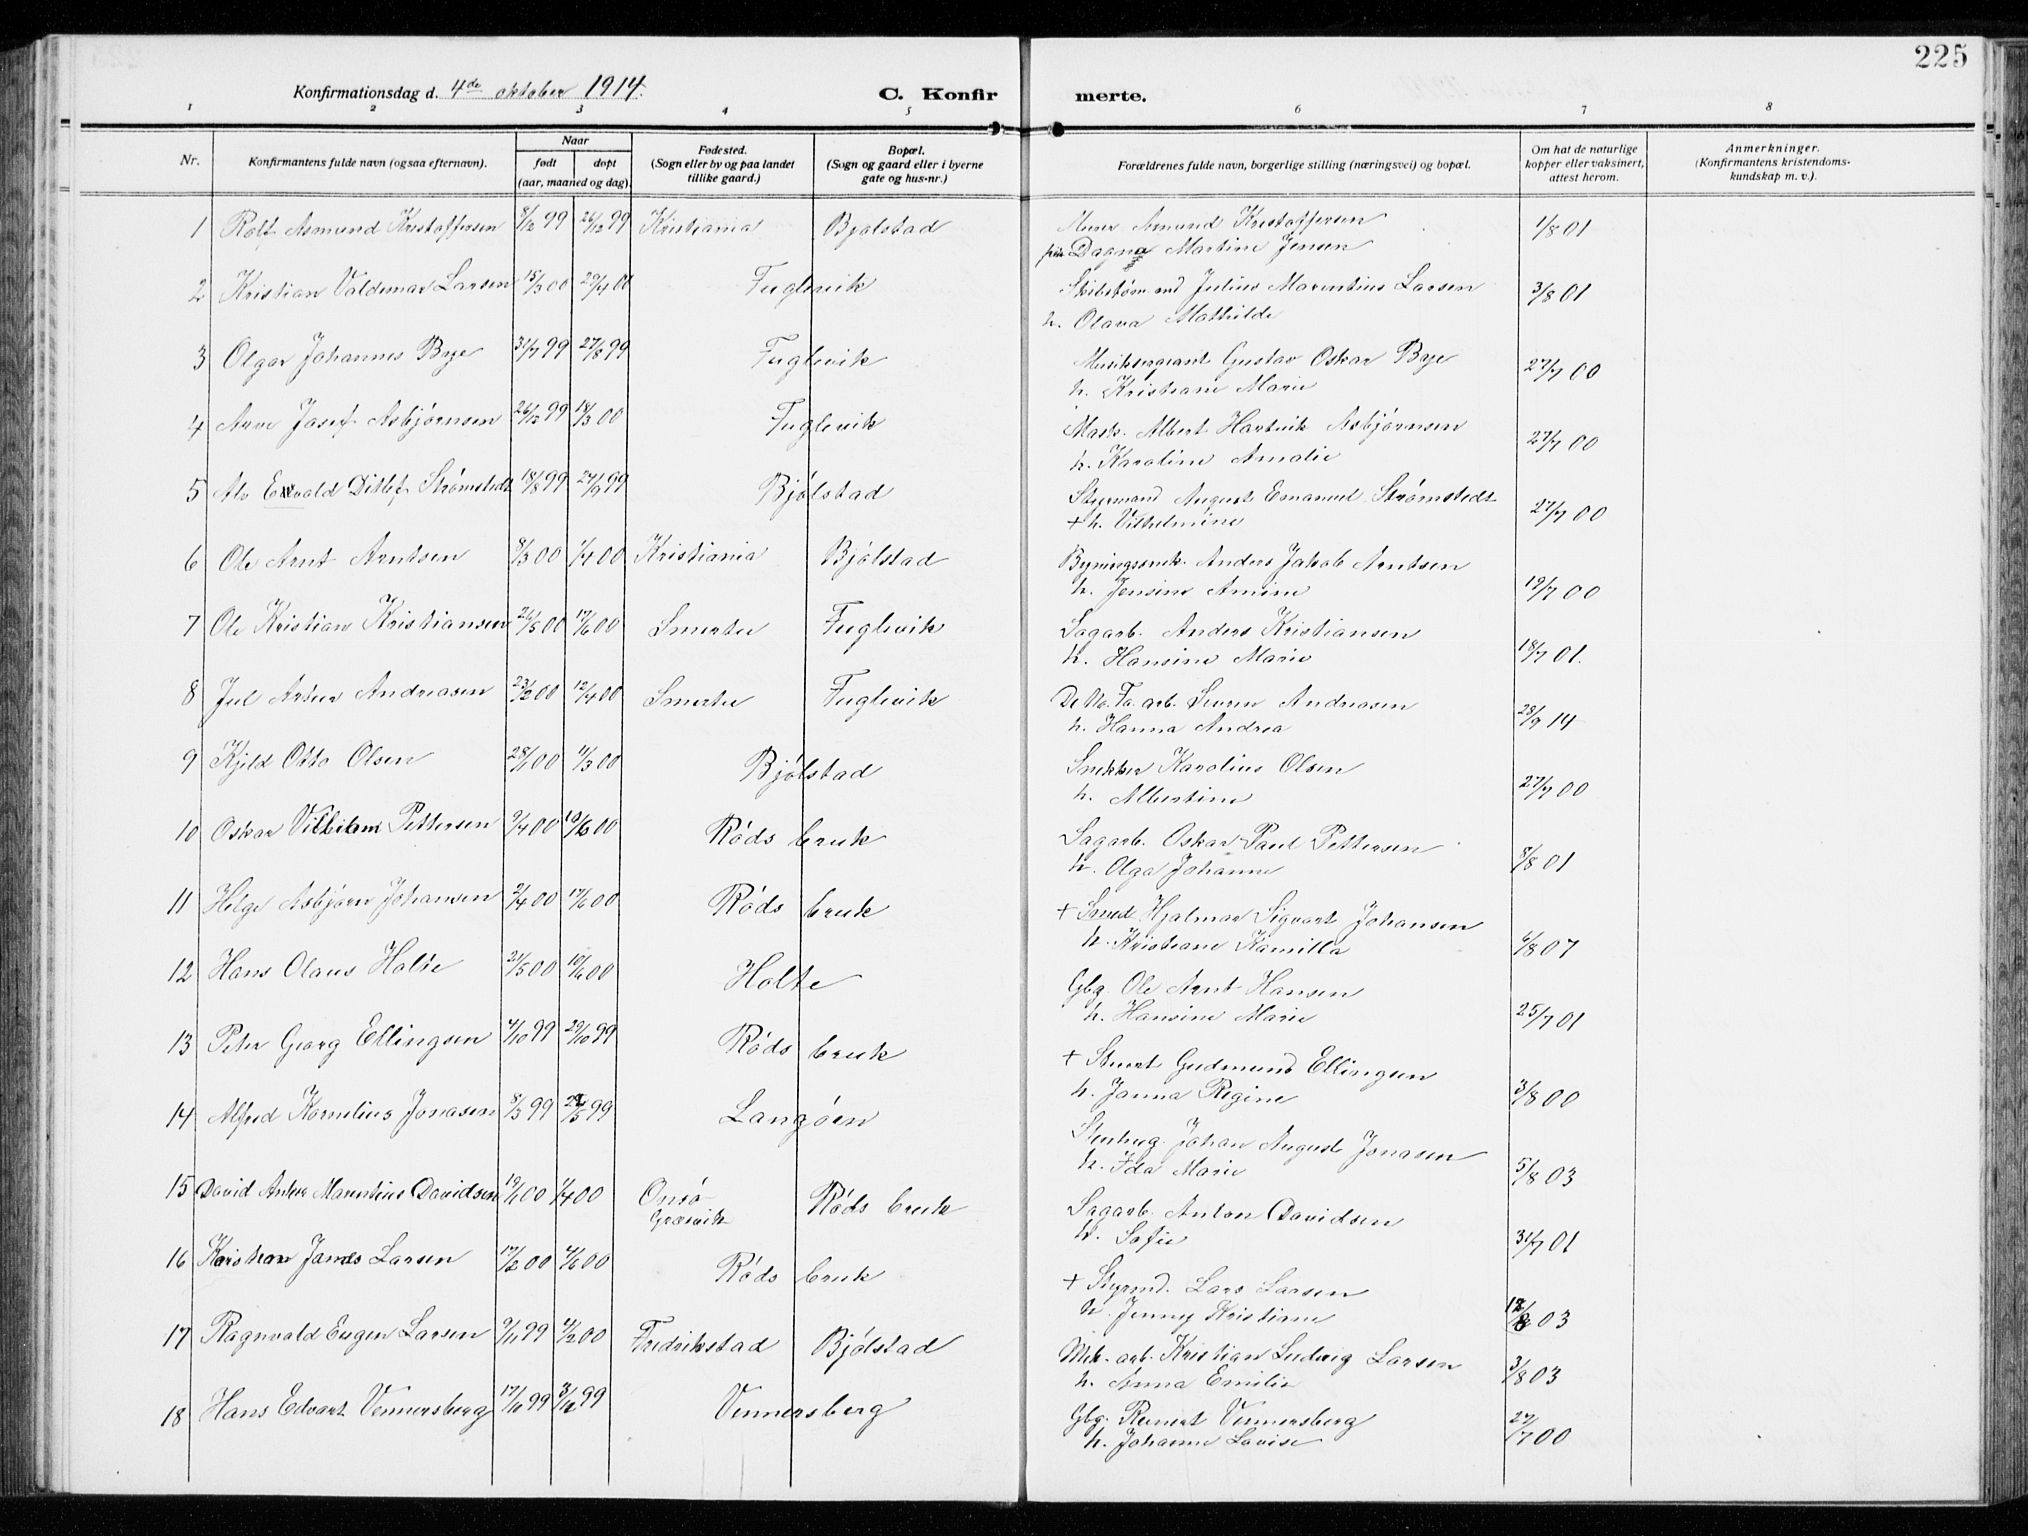 225
Konfirmationsdag d. 4de oktober 1914.
C. Konfirmerte.
1 2 3 4 5 6 7 8
Nr.
Konfirmantens fulde navn (ogsaa efternavn).
Naar
født
døpt
(aar, maaned og dag).
Fødested.
(Sogn eller by og paa landet
tillike gaard.)
Bopæl.
(Sogn og gaard eller i byerne
gate og hus-nr.)
Forældrenes fulde navn, borgerlige stilling (næringsvei) og bopæl.
Om hat de naturlige
kopper eller vaksinert,
attest herom.
Anmerkninger.
(Konfirmantens kristendoms-
kundskap m. v.).
1 Rolf Asmund Kristoffersen 8/12 99 26/12 99 Kristiania Bjølstad Murer Asmund Kristoffersen 1/8 01
Dagny Martine Jensen
2 Kristian Valdemar Larsen 15/3 00 29/4 00 Fuglevik Julius Marentius Larsen 3/8 01
h. Olava Mathilde
3 Olgar Johannes Bye 31/7 99 27/8 99 Fuglevik Musiksergeant Gustav Oskar Bye 27/7 00
h. Kristiane Marie
4 Arve Josef Asbjørnsen 26/12 99 18/3 00 Fuglevik Mask. Albert Hartvik Asbjørnsen 27/7 00
h. Karoline Amalie
5 Alv Ditlef Strømstedt 18/8 99 24/9 99 Bjølstad Styrmand August Emanuel Strømstedt 27/7 00
+ h. Vilhelmine
6 Ole Arnt Arntsen 8/3 00 1/4 00 Kristiania Bjølstad Bygningssnek. Anders Jakob Arntsen 19/7 00
h. Jensine Amine
7 Ole Kristian Kristiansen 26/5 00 17/6 00 Smertu Fuglevik Sagarb. Anders Kristiansen 18/7 01.
h. Hansine Marie
8 Jul Artur Andreasen 23/2 00 12/4 00 Smertu Fuglevik De No. Fa. arb. Søren Andreasen 28/9 14
h. Hanna Andrea
9 Kjeld Otto Olsen 28/1 00 11/3 00 Bjølstad Snekker Karolius Olsen 27/7 00
h. Albertine
10 Oskar Vilhilam Pettersen 9/4 00 10/6 00 Røds bruk Sagarb. Oskar Paul Pettersen 8/8 01
h. Olga Johanne
11 Helge Asbjørn Johansen 2/4 00 17/6 00 Røds bruk + Smed Hjalmar Sigvart Johansen 6/8 07
h. Kristiane Kamilla
12 Hans Olaus Holte 21/5 00 10/6 00 Holte Gbg. Ole Arnt Hansen 25/7 01
h. Hansine Marie
13 Peter Georg Ellingsen 4/10 99 29/10 99 Røds bruk + Stuert Gudmund Ellingsen 3/8 00
h. Janna Regine
14 Alfred Kornelius Jonasen 8/3 99 99 Langøen Stenhug. Johan August Jonasen 5/8 03
h. Ida Marie
15 David Anker Marentius Davidsen 19/1 00 1/4 00 Onsø Røds bruk Sagarb. Anton Davidsen 31/7 01
Græsvik h. Sofie
16 Karsten James Larsen 17/2 00 4/6 00 Røds bruk + Styrmd. Lars Larsen 03
h. Jenny Kristiane
17 Ragnvald Eugen Larsen 9/11 99 4/2 00 Fredrikstad Bjølstad Mek. arb. Kristian Ludvig Larsen 3/8 03
h. Anna Emilie
18 Hans Edvart Vennersberg 17/10 99 3/12 99 Vennersberg Gbg. Reinert Vennersberg 27/7 00
h. Johanne Lovise